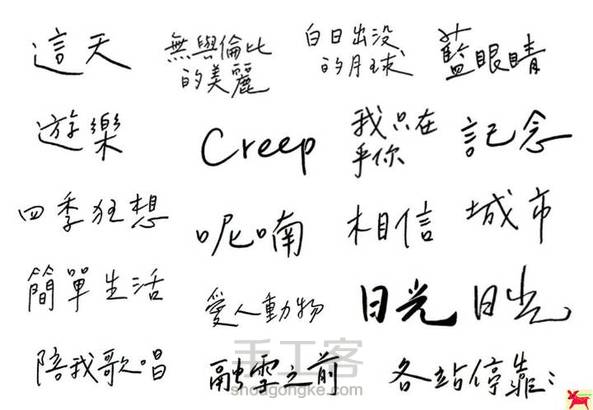 這天
無與倫比
的美麗
白日出没
的月球
藍眼睛
遊樂
Creep
我只在
乎你
記念
四季狂想
呢喃
相信
城市
簡單生活
愛人動物
日光
日光
陪我歌唱
融雪之前
各站停靠：
手工客
shougongke.com